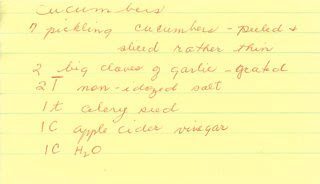 Cucumbers
7 pickling cucumbers - peeled +
sliced rather thin
2 big cloves of garlic - grated
2 T non-idozed salt
1 t celery seed
1 C apple cider vinegar
1 C H2O